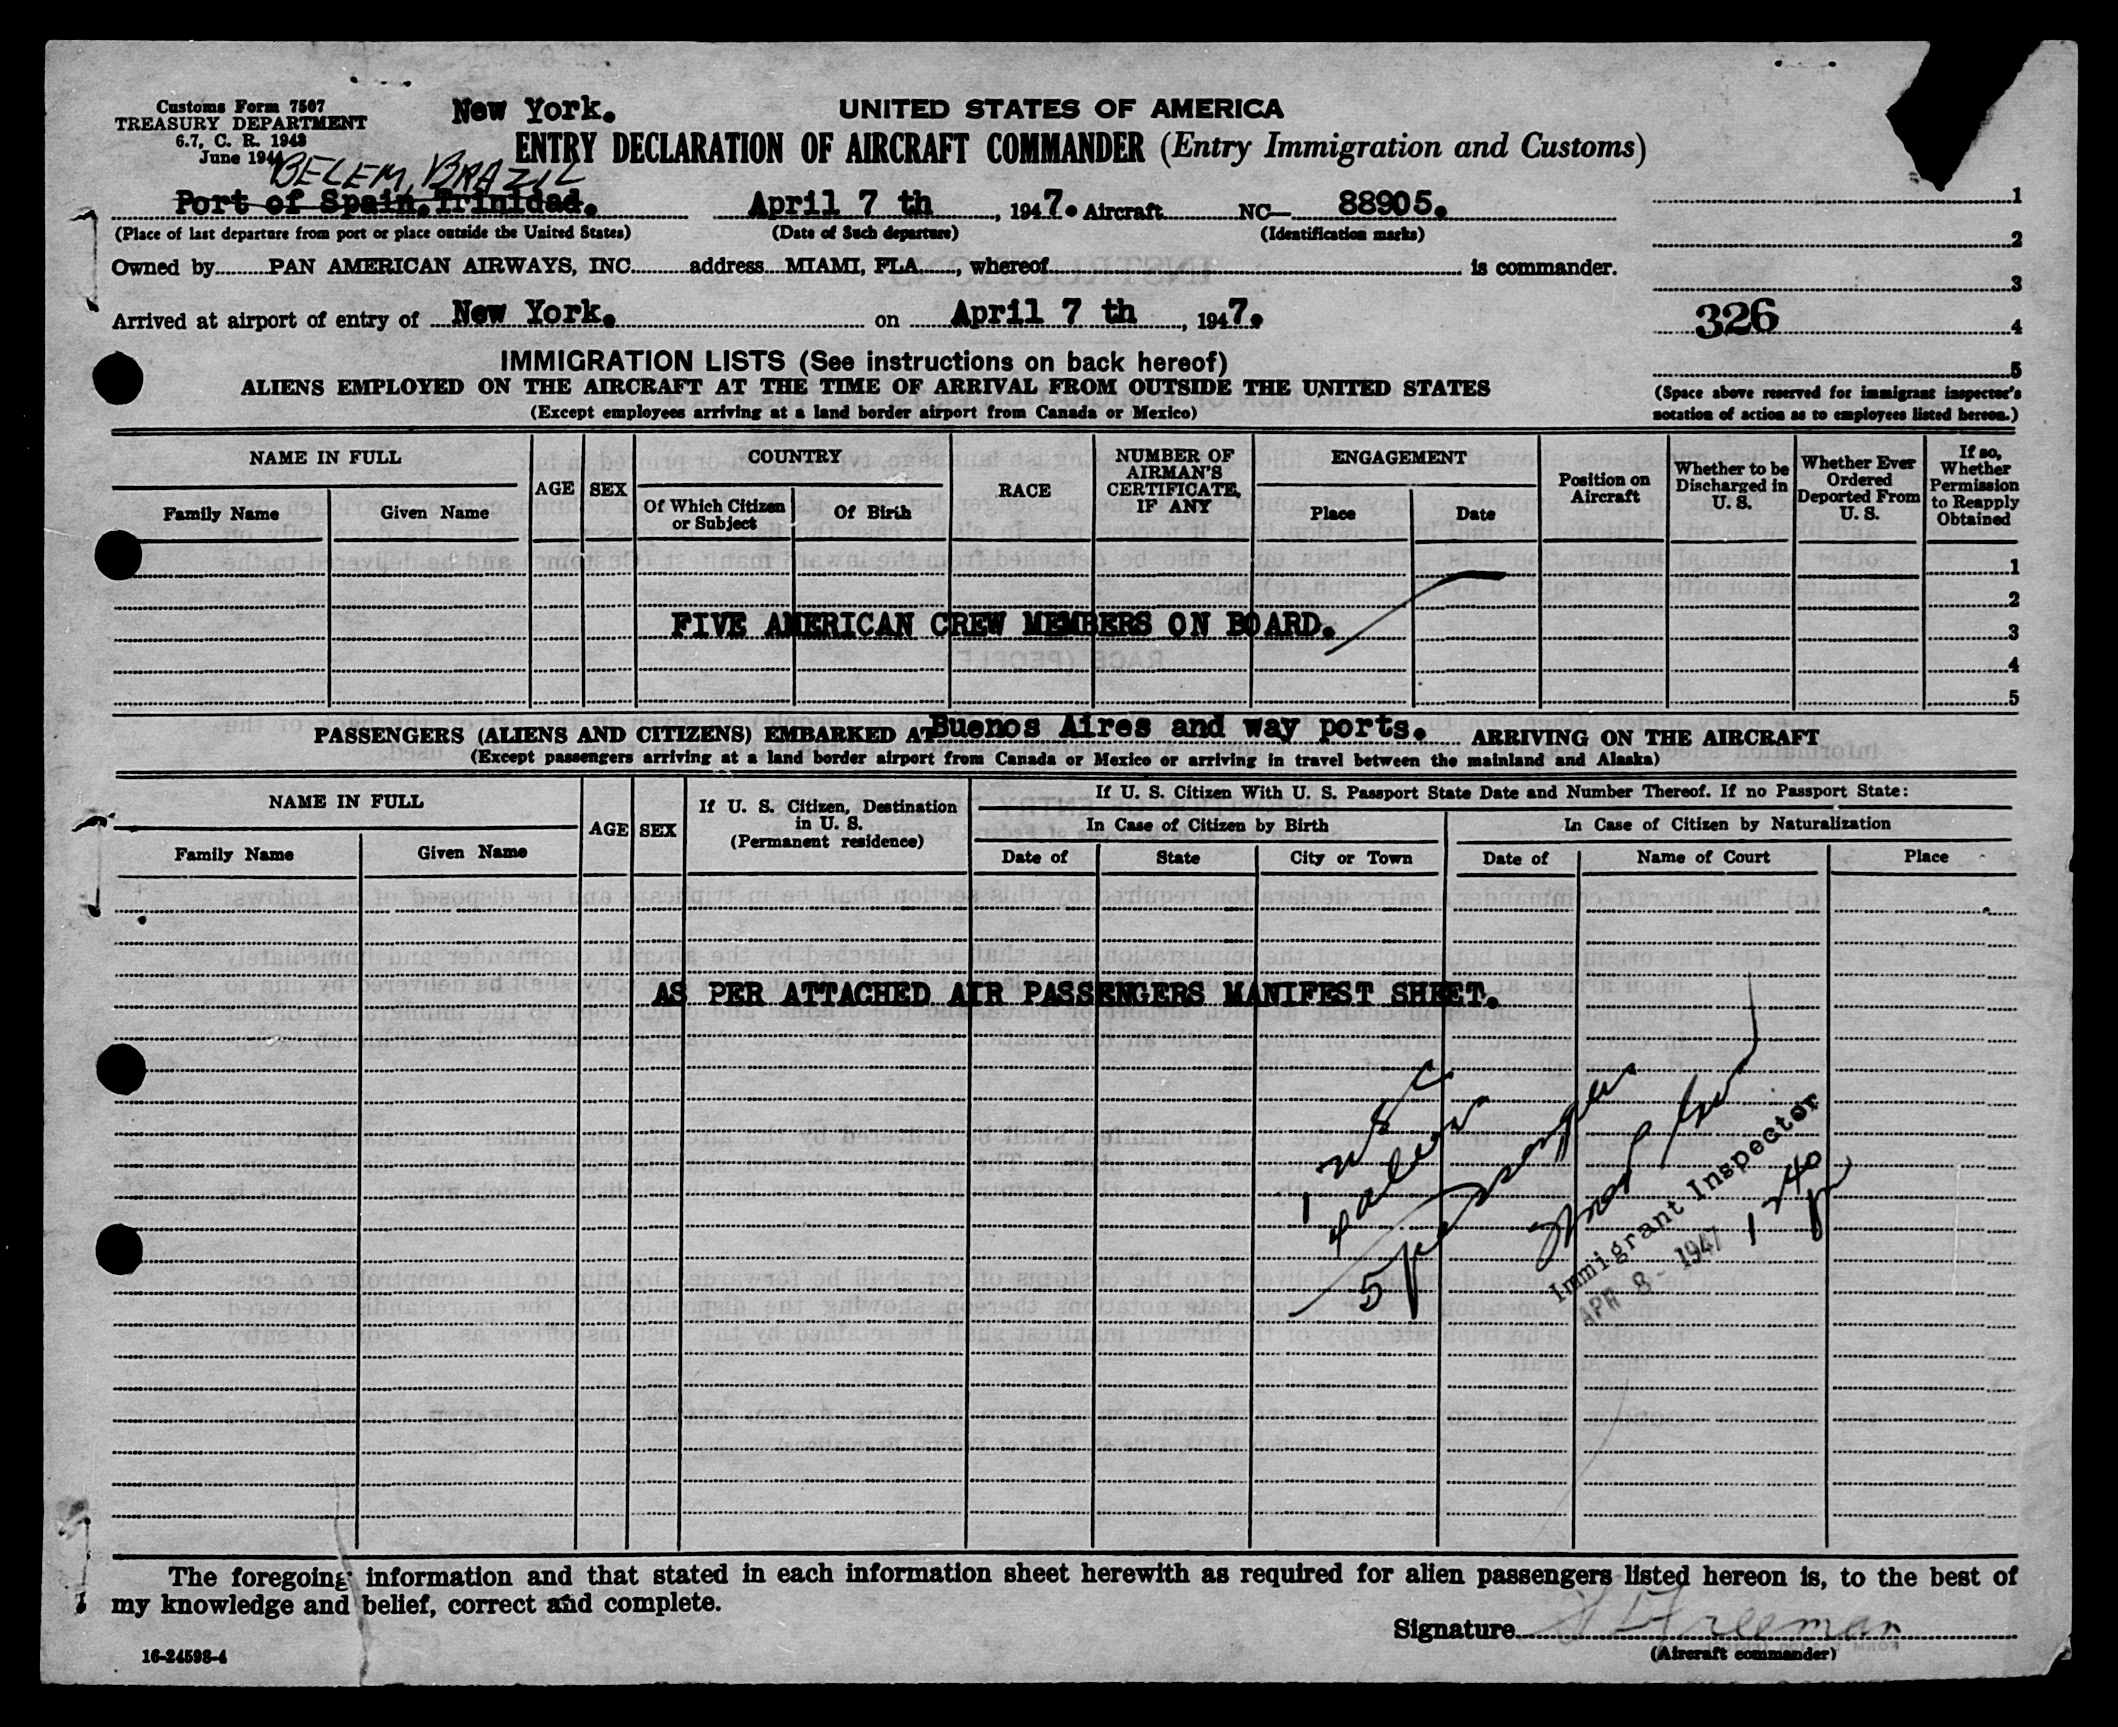 Customs Form 7507
TREASURY DEPARTMENT
6.7, C. R. 1943
June 1944
New York.
UNITED STATES OF AMERICA
ENTRY DECLARATION OF AIRCRAFT COMMANDER (Entry Immigration and Customs)
BELEM, BRAZIL
Port of Spain.Trinidad.
April 7 th, 1947. Aircraft NC— 88905.
(Place of last departure from port or place outside the United States) (Date of Such departure) (Identification marks)
Owned by PAN AMERICAN AIRWAYS, INC. address MIAMI, FLA., whereof is commander.
Arrived at airport of entry of New York. on April 7 th, 1947.
1
2
3
326 4
5
(Space above reserved for immigrant inspector's
notation of action as to employees listed hereon.)
IMMIGRATION LISTS (See instructions on back hereof)
ALIENS EMPLOYED ON THE AIRCRAFT AT THE TIME OF ARRIVAL FROM OUTSIDE THE UNITED STATES
(Except employees arriving at a land border airport from Canada or Mexico)
NAME IN FULL
Family Name
Given Name
AGE
SEX
COUNTRY
Of Which Citizen
or Subject
Of Birth
RACE
NUMBER OF
AIRMAN'S
CERTIFICATE,
IF ANY
ENGAGEMENT
Place
Date
Position on
Aircraft
Whether to be
Discharged in
U. S.
Whether Ever
Ordered
Deported From
U. S.
If so,
Whether
Permission
to Reapply
Obtained
1
2
FIVE AMERICAN CREW MEMBERS ON BOARD. 3
4
5
PASSENGERS (ALIENS AND CITIZENS) EMBARKED AT Buenos Aires and way ports. ARRIVING ON THE AIRCRAFT
(Except passengers arriving at a land border airport from Canada or Mexico or arriving in travel between the mainland and Alaska)
NAME IN FULL
Family Name
Given Name
AGE
SEX
If U. S. Citizen, Destination
in U. S.
(Permanent residence)
If U. S. Citizen With U. S. Passport State Date and Number Thereof. If no Passport State:
In Case of Citizen by Birth
Date of
State
City or Town
In Case of Citizen by Naturalization
Date of
Name of Court
Place
AS PER ATTACHED AIR PASSENGERS MANIFEST SHEET.
1 USC
4 aliens
5 passengers
Immigrant Inspector
APR 8 - 1947
1 240 pm
The foregoing information and that stated in each information sheet herewith as required for alien passengers listed hereon is, to the best of
my knowledge and belief, correct and complete.
Signature Freeman
(Aircraft commander)
16-24598-4